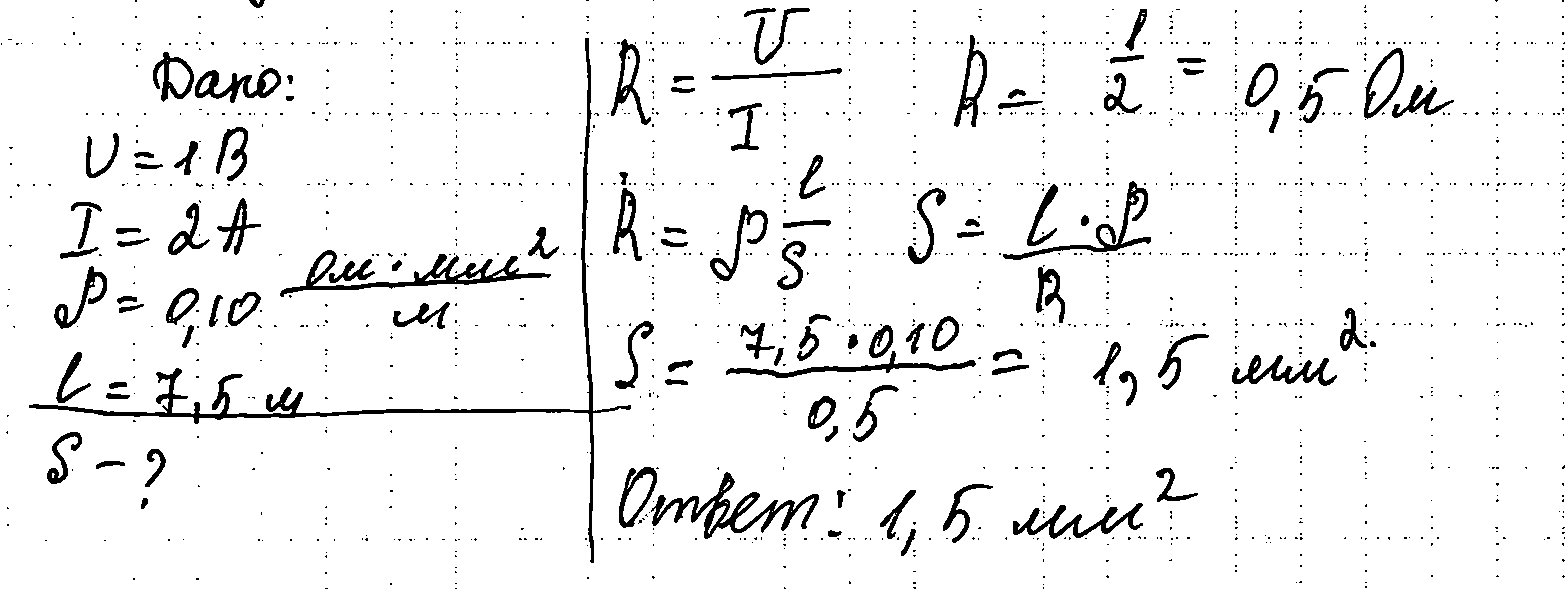 Дано:
U = 1 В
I = 2 А
ρ = 0,10 Ом · мм² / м
l = 7,5 м
S – ?
R = U / I R = 1/2 = 0,5 Ом
R = ρ l / S S = l · ρ / R
S = 7,5 · 0,10 / 0,5 = 1,5 мм².
Ответ: 1,5 мм²